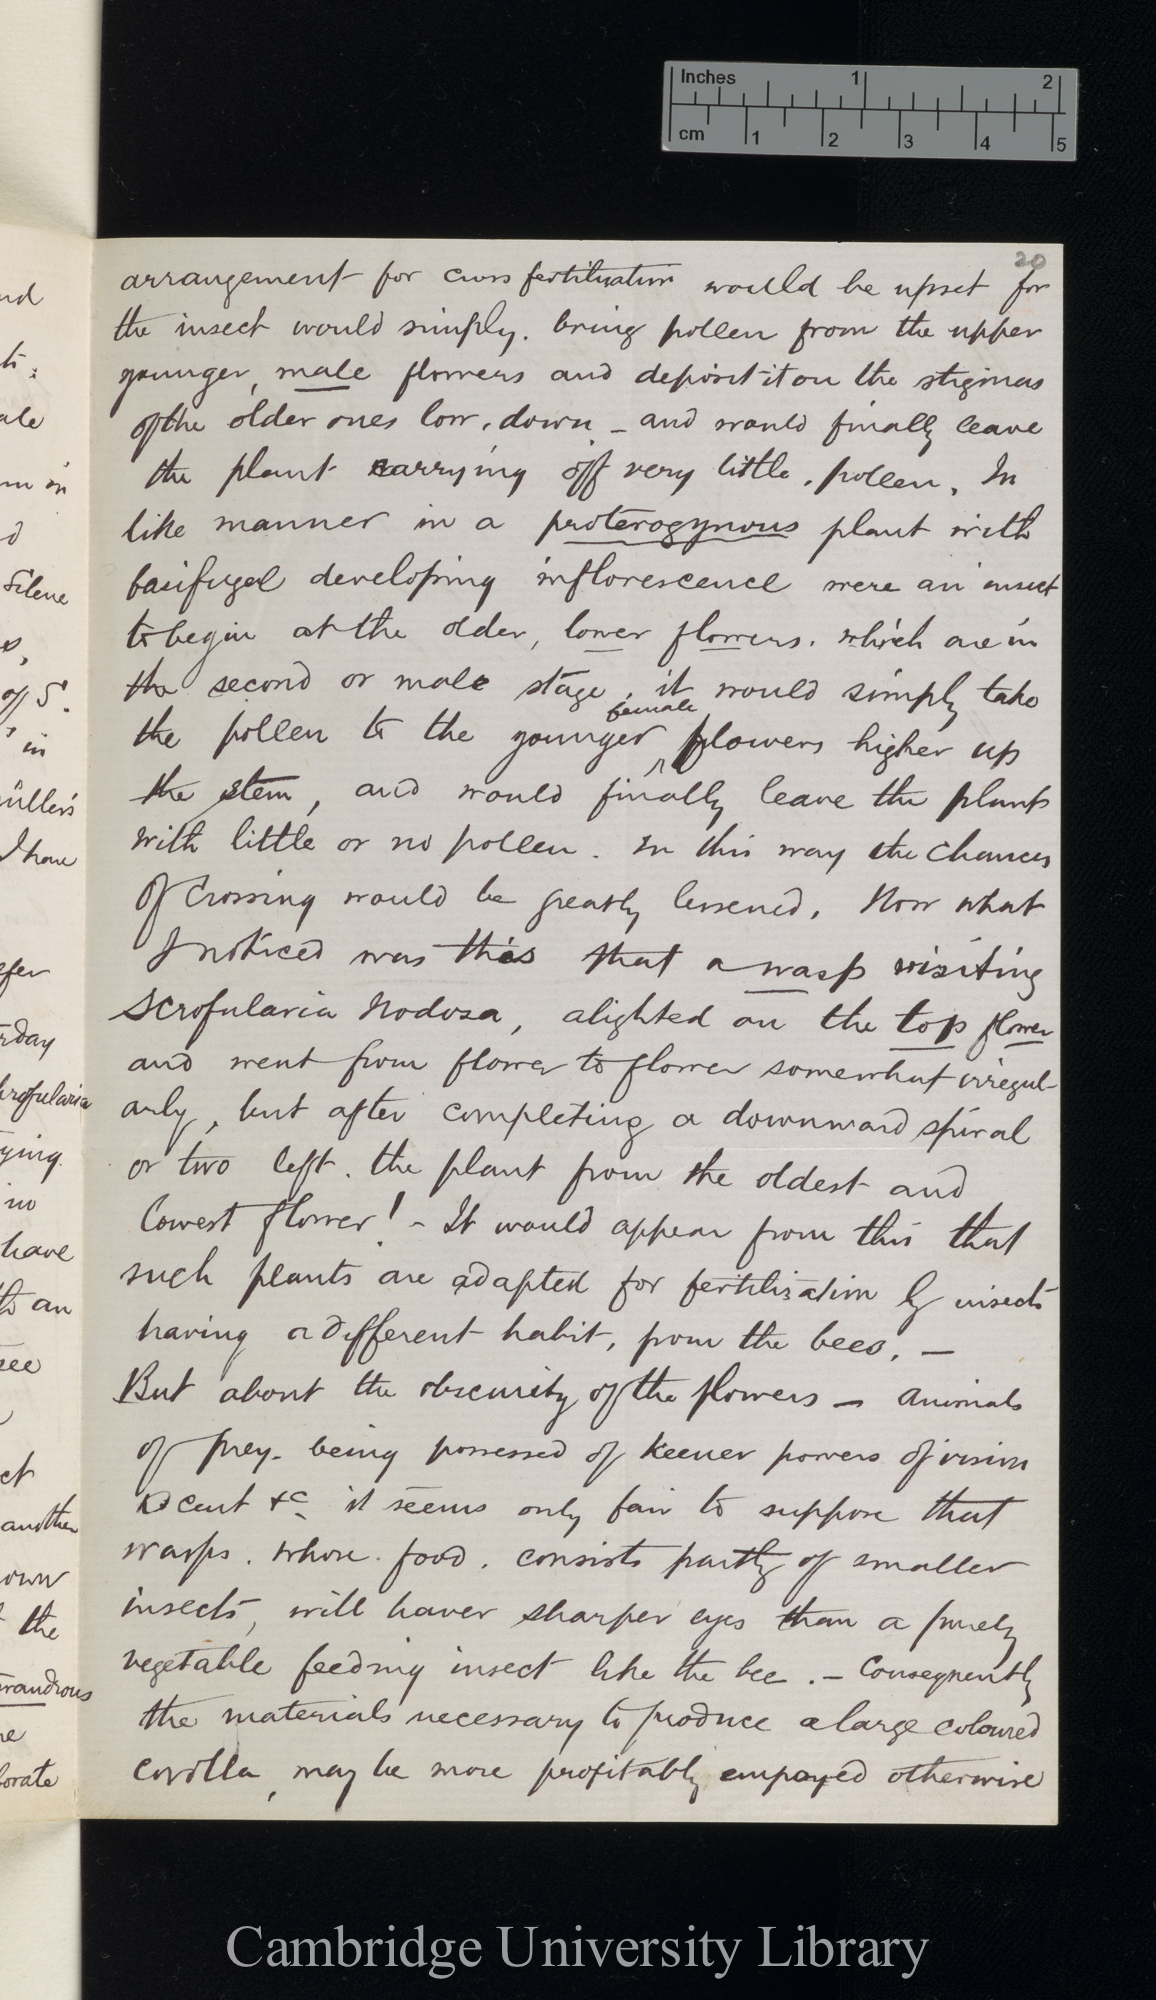 Inches 1 2
cm 1 2 3 4 5
20
arrangement for cross fertilization would be upset for
the insect would simply. bring pollen from the upper
younger, male flowers and deposit it on the stigmas
of the older ones low, down – and would finally leave
the plant carrying off very little, pollen. In
like manner in a proterogynous plant with
basifugal developing inflorescence were an insect
to begin at the older, lower flowers. which are in
the second or male stage, it would simply take
the pollen to the younger female flowers higher up
the stem, and would finally leave the plants
with little or no pollen. In this way the chances
of crossing would be greatly lessened. Now what
I noticed was this that a wasp visiting
Scrofularia Nodosa, alighted on the top flower
and went from flower to flower somewhat irregul-
arly, but after completing a downward spiral
or two left. the plant from the oldest and
lowest flower! – It would appear from this that
such plants are adapted for fertilization by insects
having a different habit, from the bees. –
But about the obscurity of the flowers – animals
of prey. being possessed of keener powers of vision
scent &c it seems only fair to suppose that
wasps. whose. food. consists partly of smaller
insects, will haver sharper eyes than a purely
vegetable feeding insect like the bee. – Consequently
the materials necessary to produce a large coloured
corolla, may be more profitably empoyed otherwise
nd
ale
Silene
of S.
in
müller's
I have
rday
ying
in
have
to an
see
another
own
the
randrous
borate
Cambridge University Library